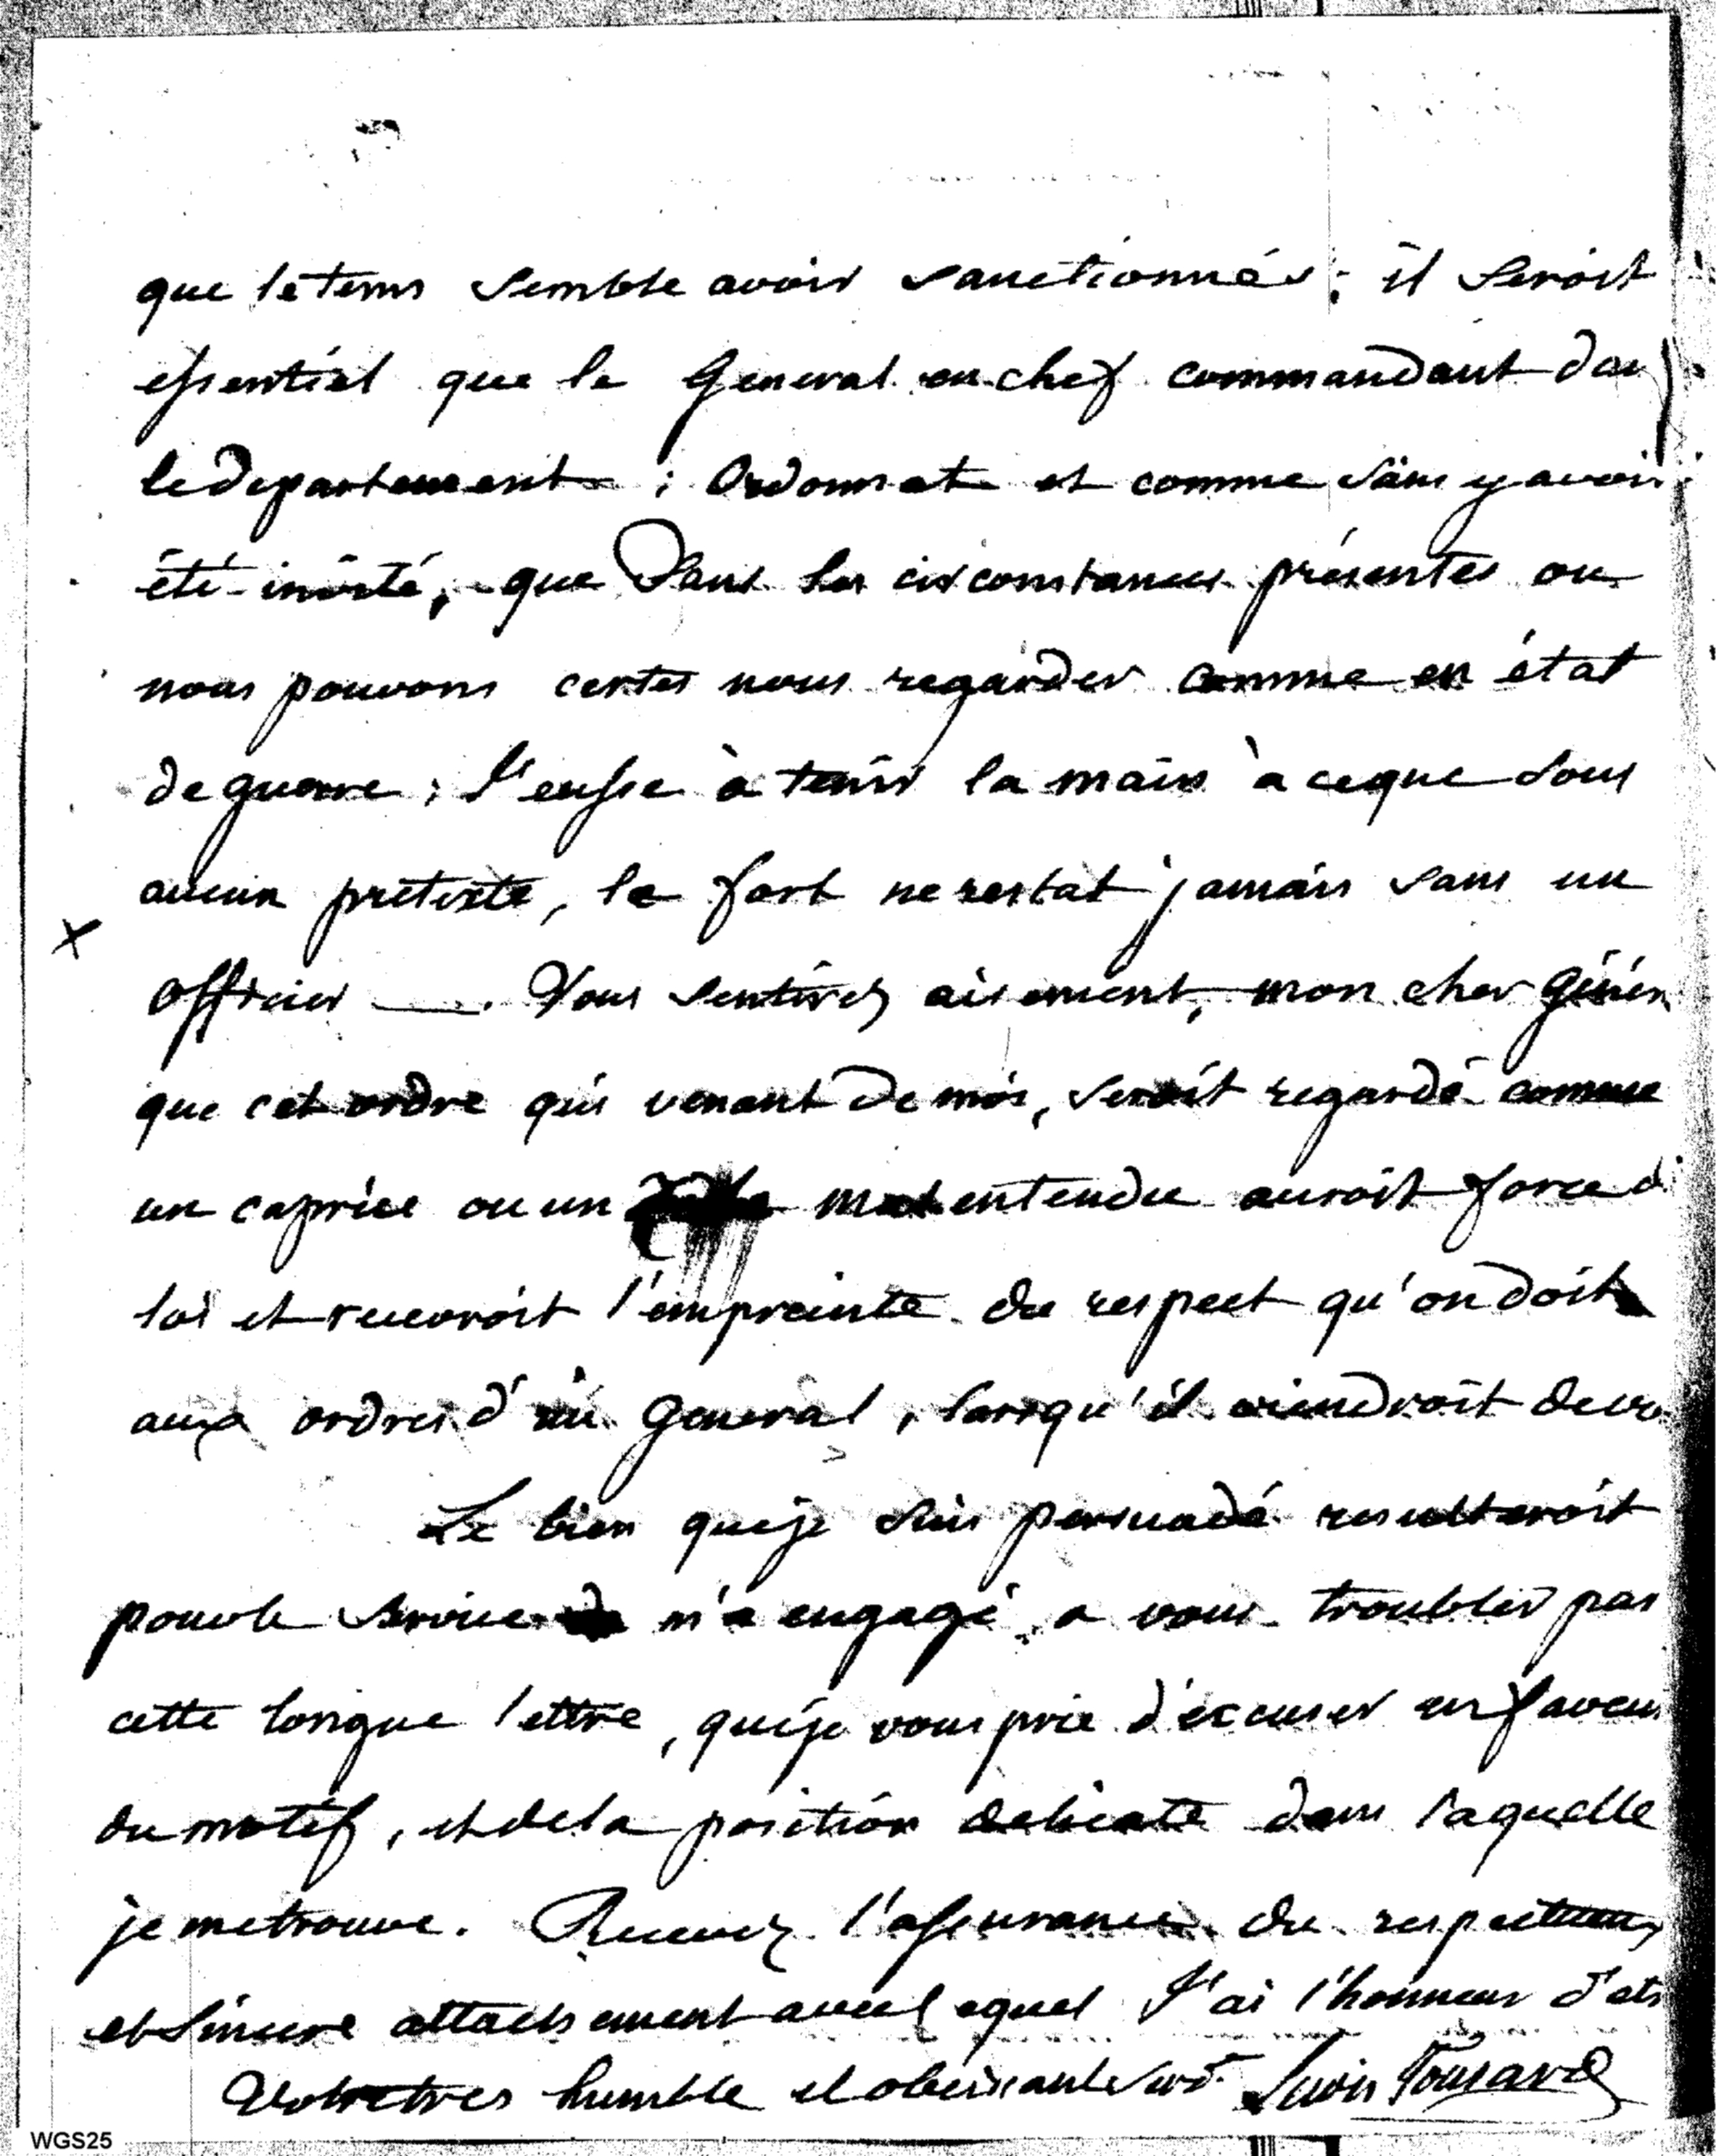 que le tems semble avoir sanctionnés; il seroit
essentiel que le General en chef commandant dan
le departement; Ordonnat et comme sans y avoir
été invité, que Dans les circonstances présentes ou
nous pouvons certes nous regarder comme en état
de guerre; J'eusse à tenir la main à ce que sous
aucun prétexte, le fort ne restat jamais sans un
x
Officier —. Vous sentirez aisement, mon cher Génér
que cet ordre qui venant De moi, seroit regardé comme
un caprice ou un mal entendu auroit force d
loi et recevroit l'empreinte du respect qu'on doit
aux ordres d'un General, lorsqu'il viendroit de vo
Le bien que je suis persuadé resulteroit
pour le service m'a engagé a vous troubler par
cette longue lettre, que je vous prie d'excuser en faveur
du motif, et de la position delicate dans laquelle
je me trouve. Recevez l'assurance du respectueux
et sincere attachement avec lequel J'ai l'honneur d'etr
Votre tres humble et obeissant servr Louis Tousard
WGS25